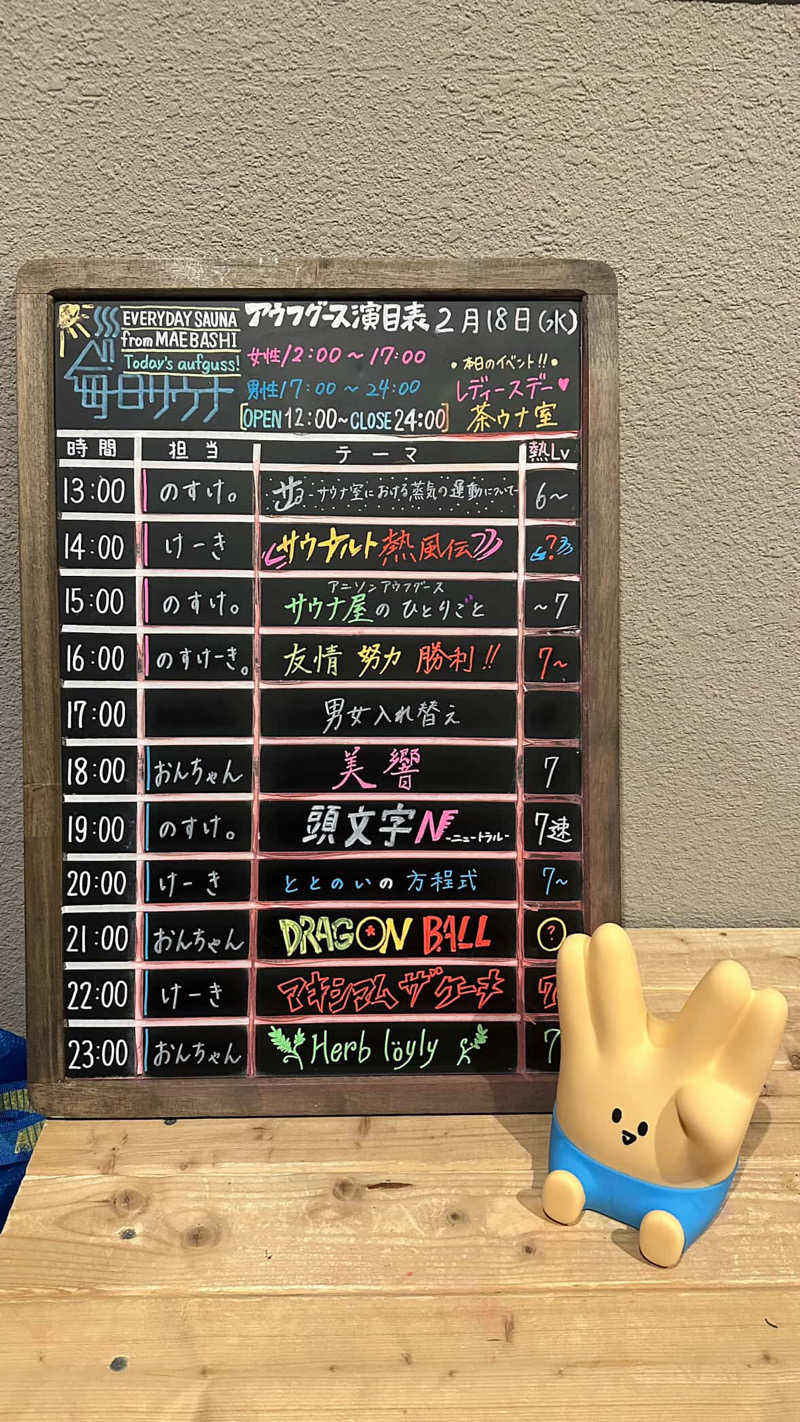 EVERYDAY SAUNA
from MAEBASHI
Today's aufguss!
毎日サウナ
アウフグース演目表 2月18日(水)
女性12:00～17:00
男性17:00～24:00
[OPEN 12:00～CLOSE 24:00]
・本日のイベント!!・
レディースデー♥
茶ウナ室
時間 担当 テーマ 熱Lv
13:00 のすけ。 サ ヨ -サウナ室における蒸気の運動について- 6～
14:00 けーき サウナルト熱風伝 ?
アニソンアウフグース
15:00 のすけ。 サウナ屋のひとりごと ～7
16:00 のすけーき。 友情 努力 勝利!! 7～
17:00 男女入れ替え
18:00 おんちゃん 美響 7
19:00 のすけ。 頭文字N -ニュートラル- 7速
20:00 けーき ととのいの方程式 7～
21:00 おんちゃん DRAGON BALL ?
22:00 けーき マキシマムザケーキ 7
23:00 おんちゃん Herb löyly 7